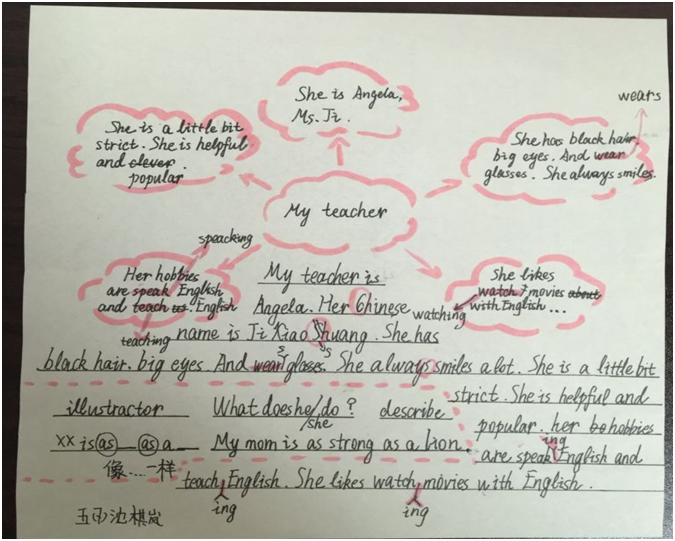 She is Angela,
Ms. Ji.
wears
She is a little bit
strict. She is helpful
and clever
popular
She has black hair.
big eyes. And wear
glasses. She always smiles.
My teacher
speacking
Her hobbies
are speak English
and teach us. English
teaching
She likes
watch 7 movies about
with English...
watching
My teacher is
Angela. Her Chinese
name is Ji Xiao Shuang. She has
black hair. big eyes. And wear glasses. She always smiles a lot. She is a little bit
s
s
strict. She is helpful and
popular. her be hobbies
ing
are speak English and
teach English. She likes watch movies with English.
ing
ing
illustractor What does he/do? describe
she
XX is as as a My mom is as strong as a lion.
像……一样
池棋岚